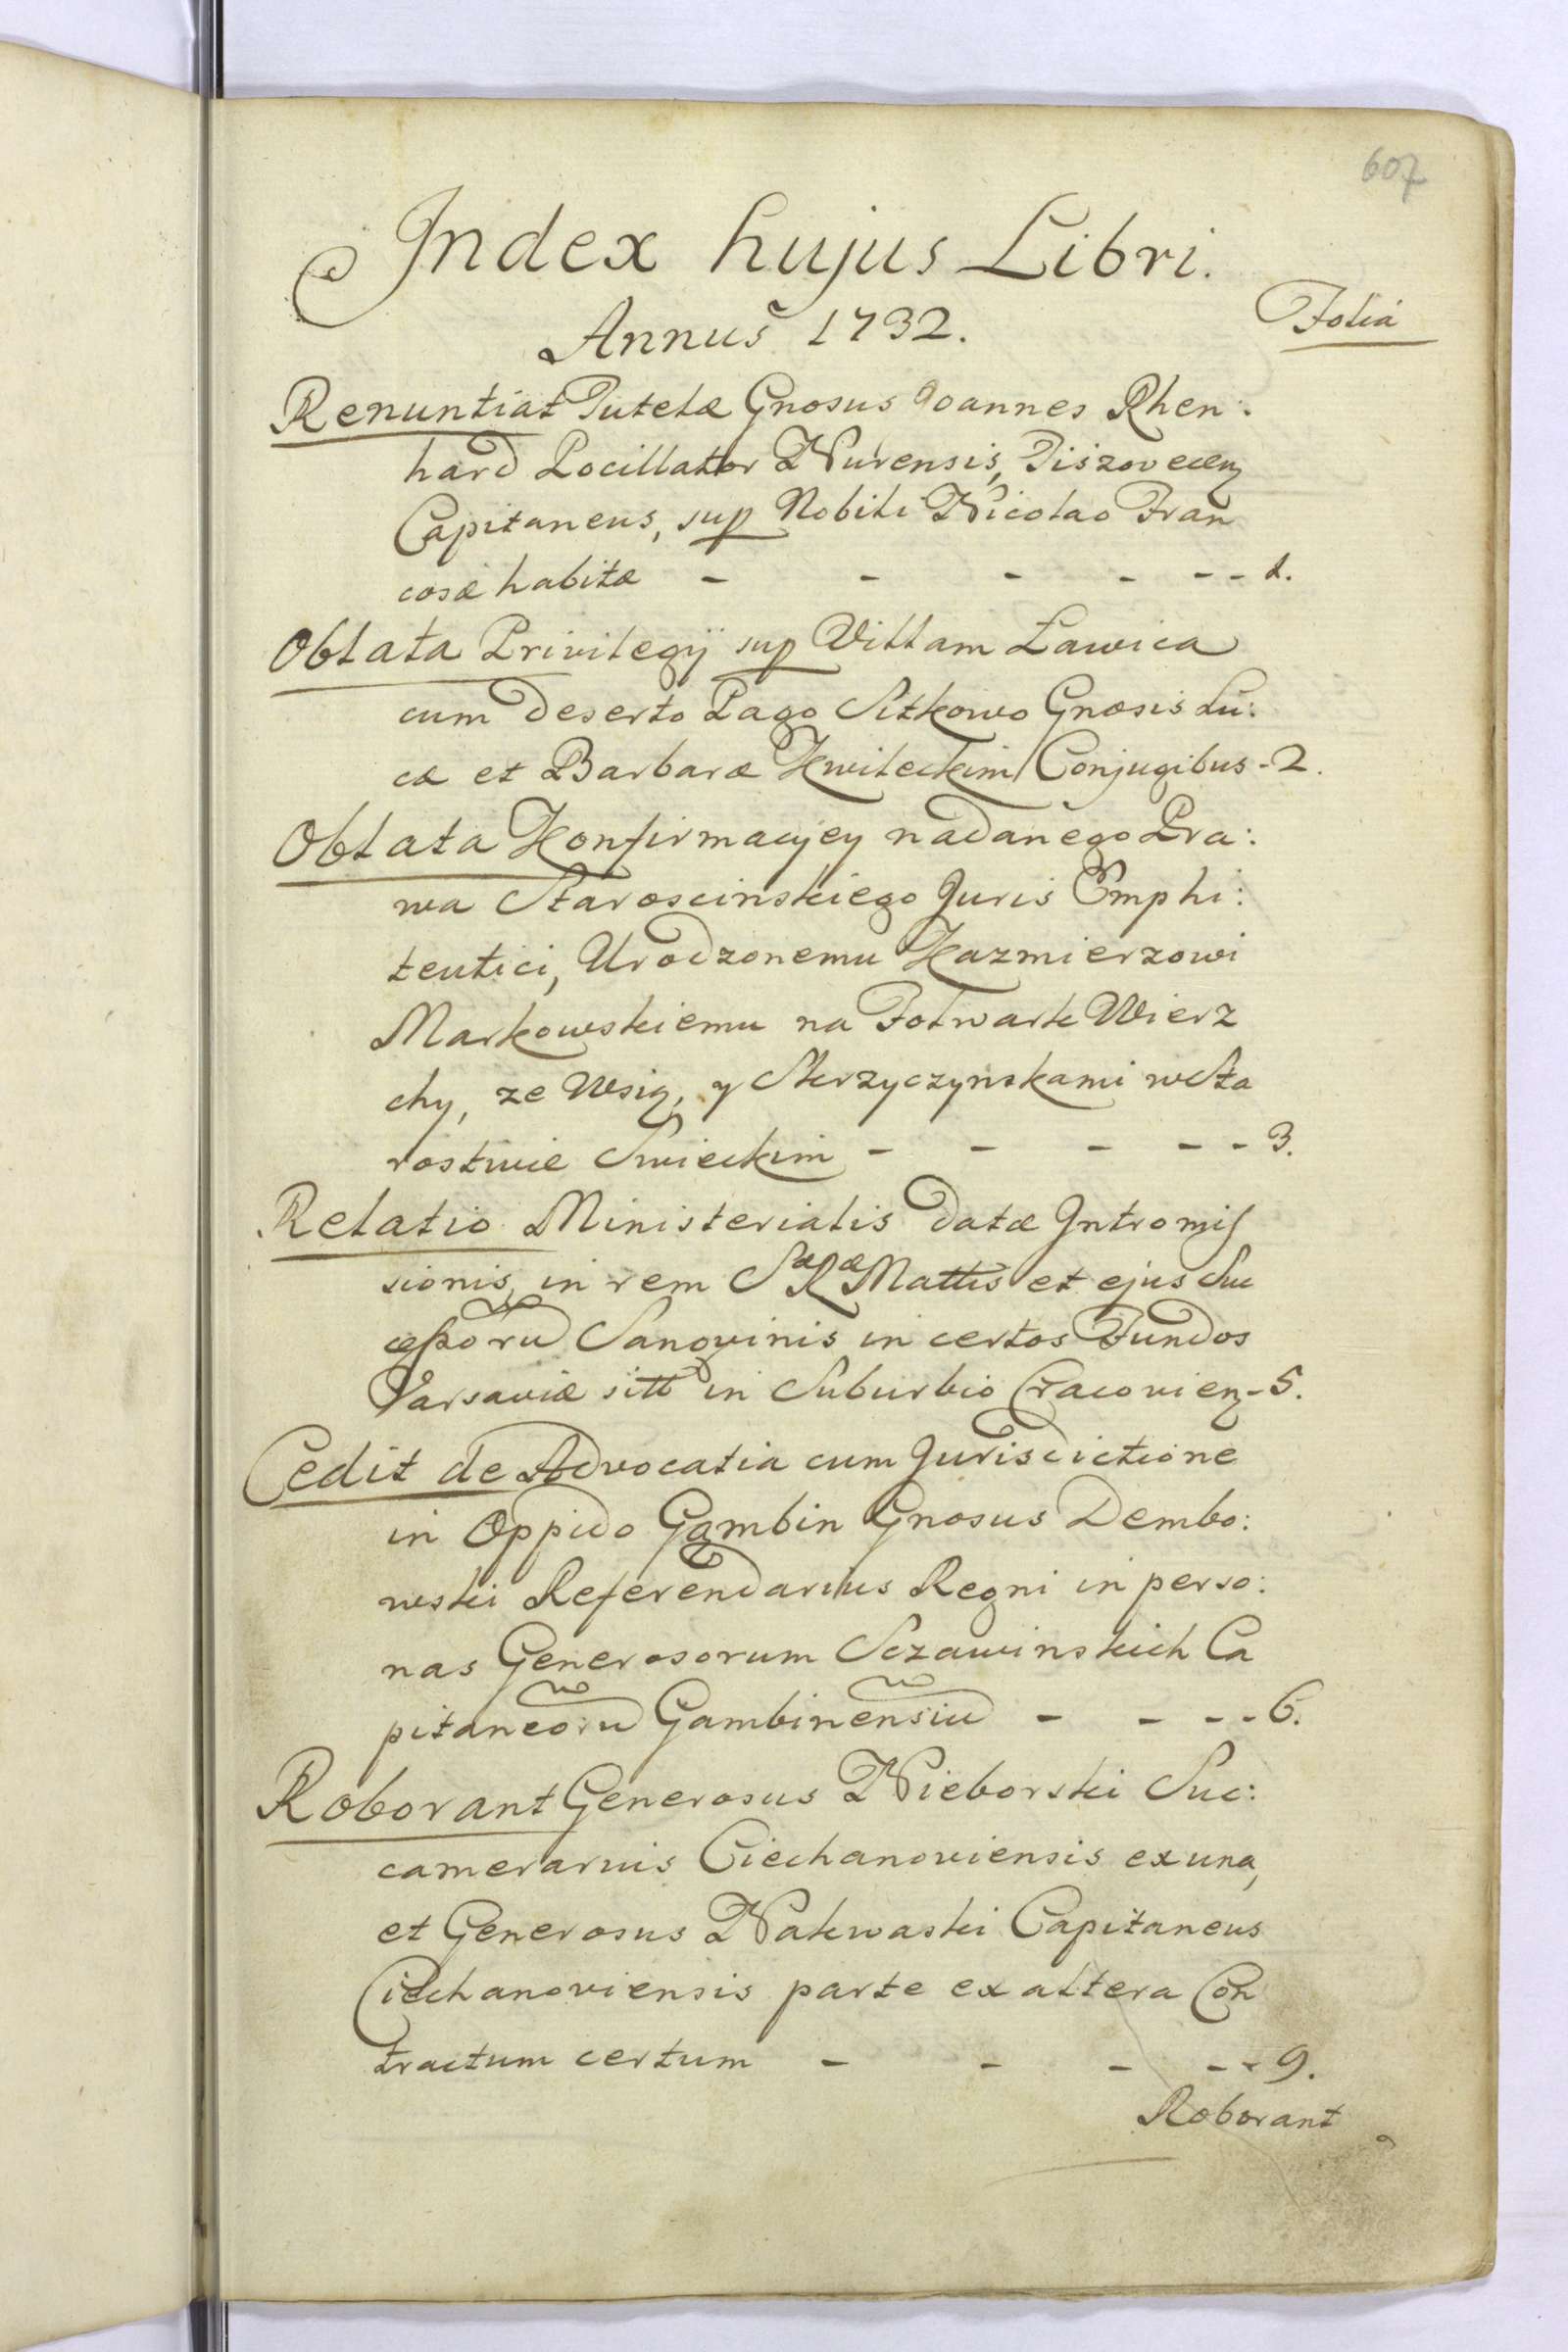 607
Index hujus Libri.
Annus 1732.
Folia
Renuntiat Tutelæ Gnosus Joannes Rhen:
hard Pocillator Nurensis, Tiszovecen
Capitaneus, sup Nobili Nicolao Fran
cosæ habitæ - - - - - - 1.
Oblata Privilegij sup Villam Ławica
cum deserto Pago Sitkowo Gnosis Lu:
cæ et Barbaræ Kwileckim Conjugibus - 2.
Oblata Konfirmacyey nadanego Pra:
wa Staroscinskiego Juris Emphi:
teutici, Urodzonemu Kazmierzowi
Markowskiemu na Folwark Wierz
chy, ze Wsią, y Skrzyczynskami w Sta
rostwie Swieckim - - - - - 3.
Relatio Ministerialis datæ Intromis
sionis, in rem SæRæMattis et ejus Suc
cessorũ Sanguinis in certos Fundos
Varsaviæ sitt in Suburbio Cracovien - 5.
Cedit de Advocatia cum Jurisdictione
in Oppido Gambin Gnosus Dembo:
wski Referendarius Regni in perso:
nas Generosorum Szczawinskich Ca
pitaneorũ Gambinensiũ - - - - 6.
Roborant Generosus Nieborski Suc:
camerarius Ciechanoviensis ex una,
et Generosus Nakwaski Capitaneus
Ciechanoviensis parte ex altera Con
tractum certum - - - - - 9.
Roborant